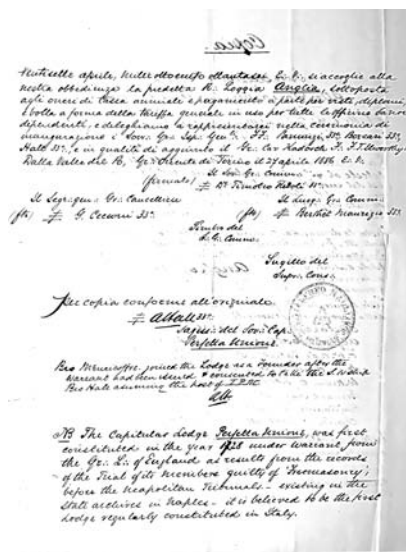 Copia.
Ventisette aprile, mille ottocento ottantasei, E∴ V∴ si accoglie alla
nostra obbedienza la predetta R∴ Loggia Anglia, sottoposta
agli oneri di tassa annuali e pagamento a parte per visti, diplomi,
e bolla a forma della tariffa generale in uso per tutte le officine da noi
dipendenti, e deleghiamo a rappresentarci nella cerimonia di
inaugurazione i Sov∴ Gr∴ Isp∴ Gen∴ FF∴ 33∴ Borsari 33∴
Hall 33∴, e in qualità di aggiunto il Gr∴ Cav Kadosch F∴
Dalla Valle del R∴ Gr∴ Oriente di Torino il 27 aprile 1886 E∴ V∴
Il Sov∴ Gr∴ Comm∴
(firmato) Dr Timoteo Riboli 33∴
Il Segr∴ gen∴ Gr∴ Cancelliere Il Luog∴ Gr∴ Comm∴
(fto) G. Cecconi 33∴ (fto) Berthet Maurizio 33∴
Timbro del
S. G. Comm∴
Sugillo del
Supr∴ Cons∴
Per copia conforme all'originale
A Hall 33∴
Sagg∴ del Sov∴ Cap∴
Perfetta Unione.
Bro joined the Lodge as a Founder after the
Warrant had been issued & consented to take the S. W ship
Bro Hall assuming the post of I.P.M.
NB The Capitular Lodge Perfetta Unione, was first
constituted in the year 1728 under warrant from
the Gr∴ L∴ of England as results from the records
of the Trial of its members guilty of Freemasonry,
before the Neapolitan Tribunals - existing in the
State archives in Naples - it is believed to be the first
Lodge regularly constituted in Italy.